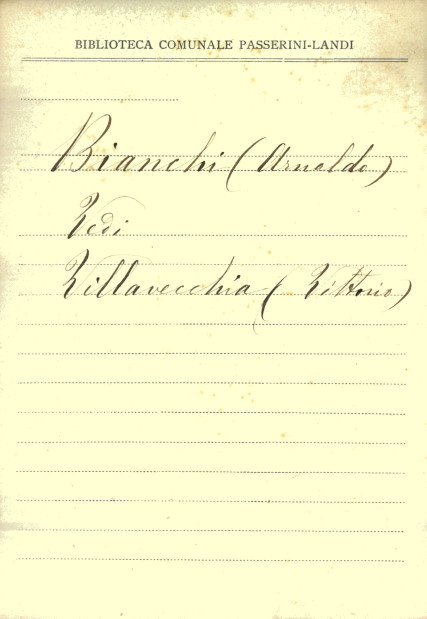 BIBLIOTECA COMUNALE PASSERINI-LANDI
Bianchi (Arnaldo)
Vedi
Villavecchia (Vittorio)